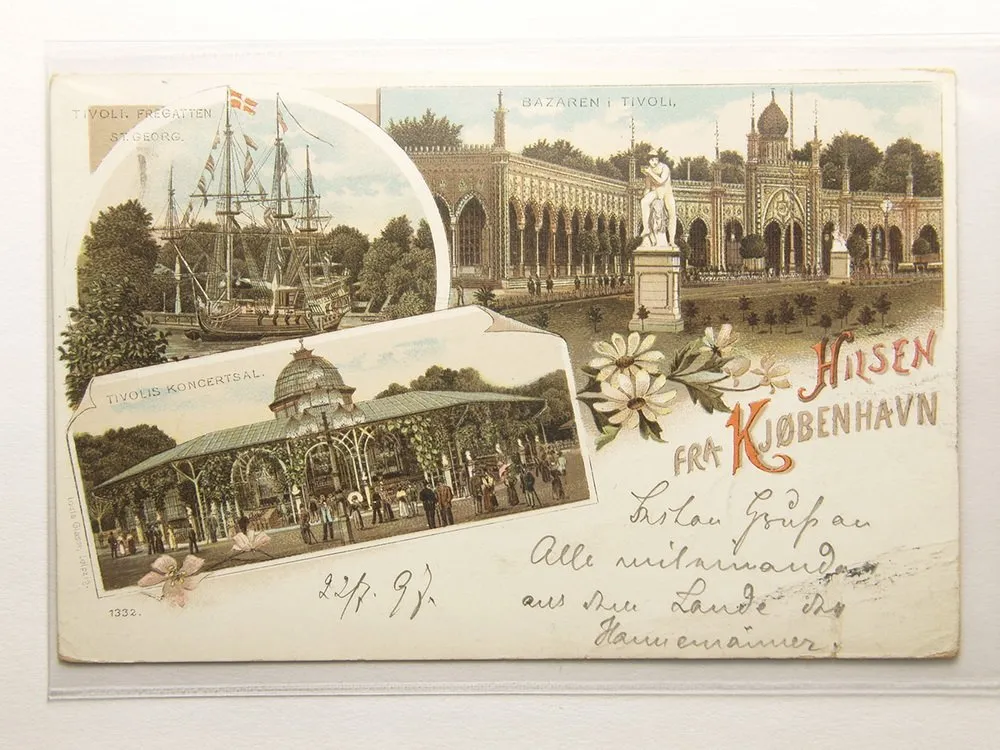 TIVOLI. FREGATTEN
ST. GEORG.
BAZAREN i TIVOLI.
TIVOLIS KONCERTSAL.
HILSEN
FRA KJØBENHAVN
Gruß an
Alle miteinander
aus dem Lande der
Hannemänner.
22/7. 97.
1332.